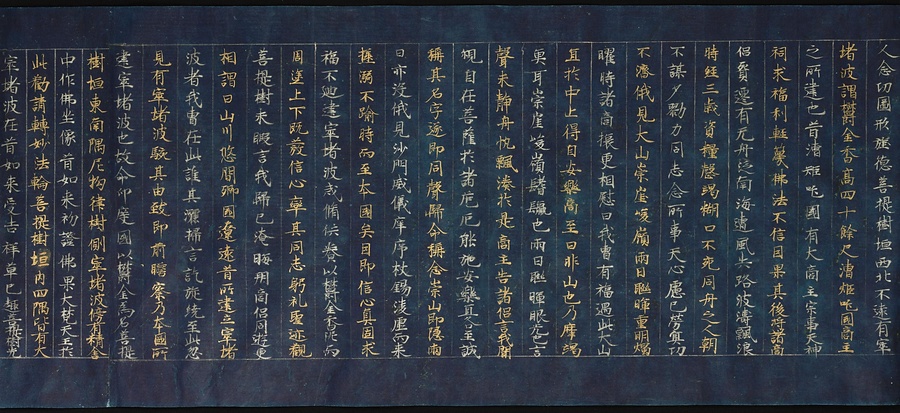 人念功圖形旌德菩提樹垣西北不遠有窣
堵波謂欝金香高四十餘尺漕矩吒國商主
之所建也昔漕矩吒國有大商主宗事天神
祠求福利輕蔑佛法不信因果其後將諸商
侶貿遷有无舟汎南海遭風失路波濤飄浪
時經三歲資糧罄竭糊口不充同舟之人朝
不謀夕勠力同志念所事天心慮已勞冥功
不濟俄見大山崇崖峻嶺兩日聯暉重明燭
曜時諸商振更相慰曰我曹有福遇此大山
宜於中上得自安樂商主曰非山也乃摩竭
魚耳崇崖峻嶺鬚鬣也兩日聯暉眼光也言
聲未靜舟帆飄湊於是商主告諸侶言我聞
觀自在菩薩於諸危厄能施安樂宜各至誠
稱其名字遂即同聲歸命稱念崇山即隱兩
日亦沒俄見沙門威儀庠序杖錫淩虛而來
拯溺不踰時而至本國矣因即信心貞固求
福不迴建窣堵波式脩供養以欝金香泥而
周塗上下既發信心率其同志躬礼聖迹觀
菩提樹未暇言歸已淹晦朔商侶同遊更
相謂曰山川悠間鄉國遼遠昔所建立窣堵
波者我曹在此誰其灑掃言訖旋繞至此忽
見有窣堵波駭其由致即前瞻察乃本國所
建窣堵波也故今印度國以欝金為名菩提
樹垣東南隅尼拘律樹側窣堵波傍有精舍
中作佛坐像昔如來初證佛果大梵天王於
此勸請轉妙法輪菩提樹垣内四隅皆有大
窣堵波在昔如來受吉祥草已趣菩提樹